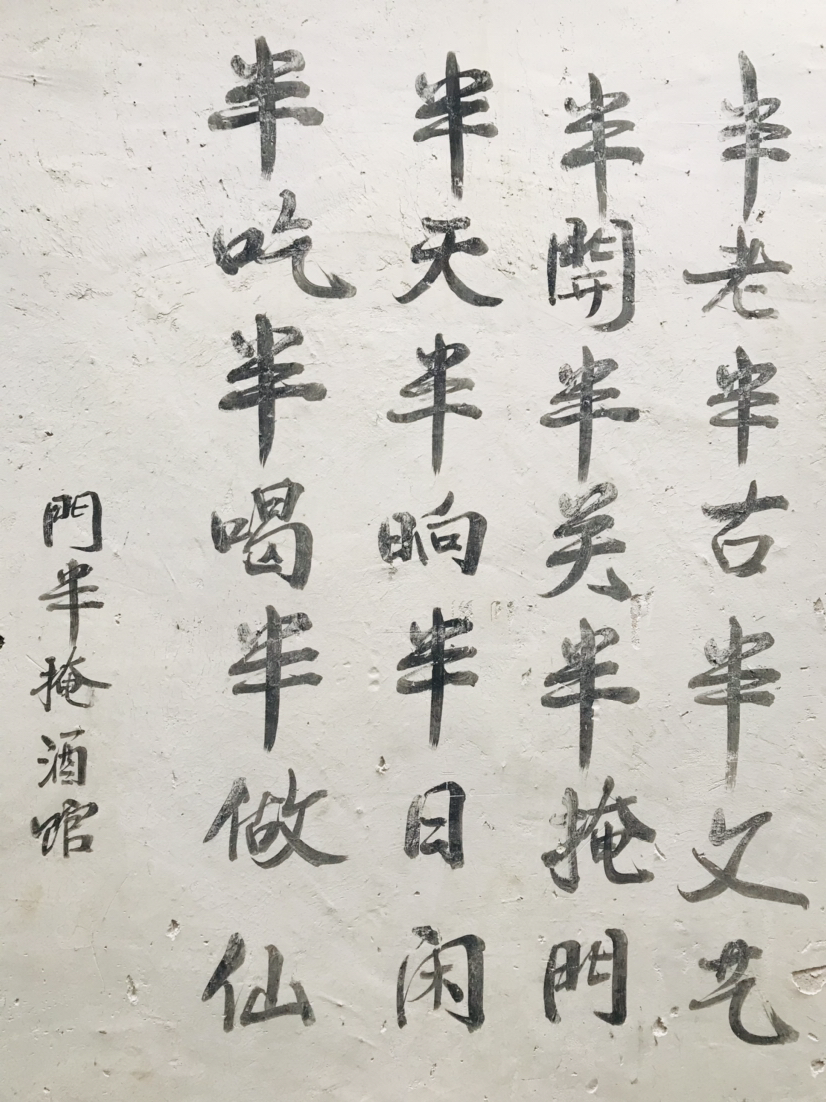 半老半古半文艺
半開半关半掩門
半天半晌半日闲
半吃半喝半做仙
門半掩酒馆